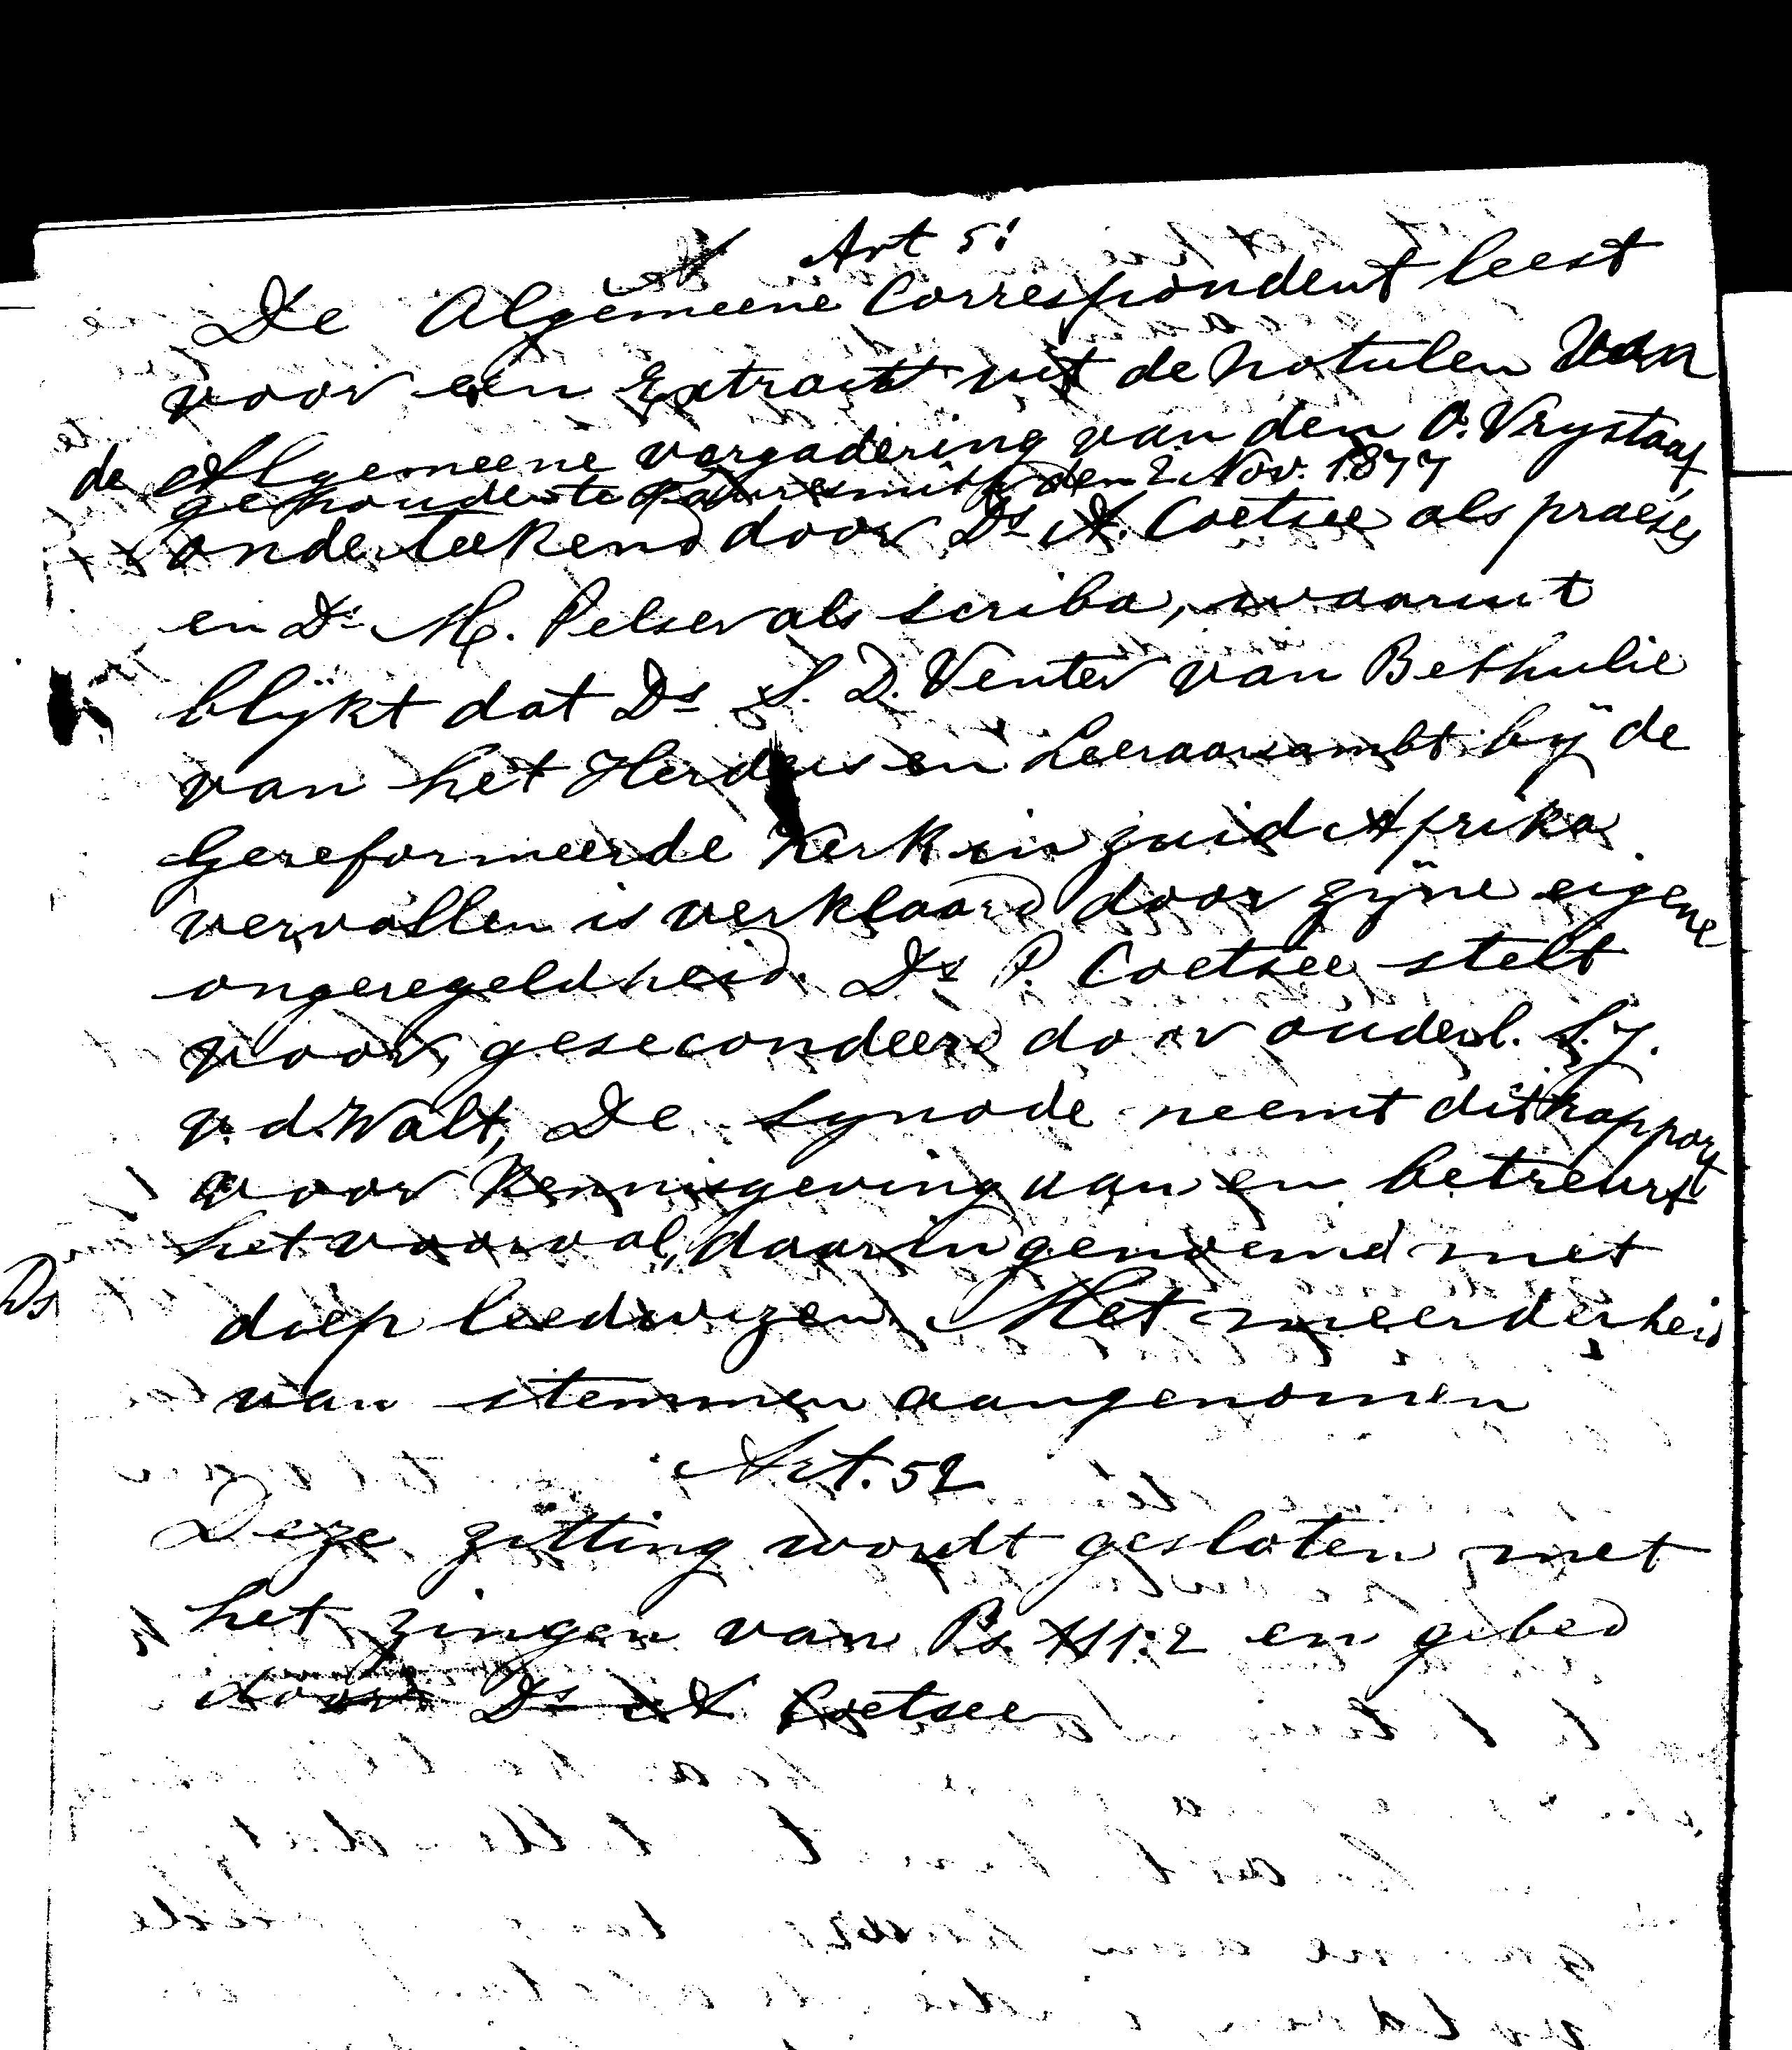 Art 51
De Algemeene Correspondent leest
voor een Extract uit de notulen van
de Algemeene vergadering van den O. Vrystaat,
gehouden te Fauresmith den 2 Nov. 1877
onderteekend door Ds A. Coetsee als praeses
en Ds M. Pelser als scriba, waaruit
blijkt dat Ds S. D. Venter van Bethulie
van het Herders en Leeraarsambt bij de
Gereformeerde Kerk in Zuid Afrika
vervallen is verklaard door zijne eigene
ongeregeldheid. Ds P. Coetsee stelt
voor, gesecondeerd door ouderl. S. J.
v. d. Walt, De synode neemt dit Rapport
voor Kennisgeving aan en betreurt
het voorval, daarin genoemd met
Ds
diep leedwezen. Met meerderheid
van stemmen aangenomen
Art. 52
Deze zitting wordt gesloten met
het zingen van Ps. 111:2 en gebed
door Ds A Coetsee